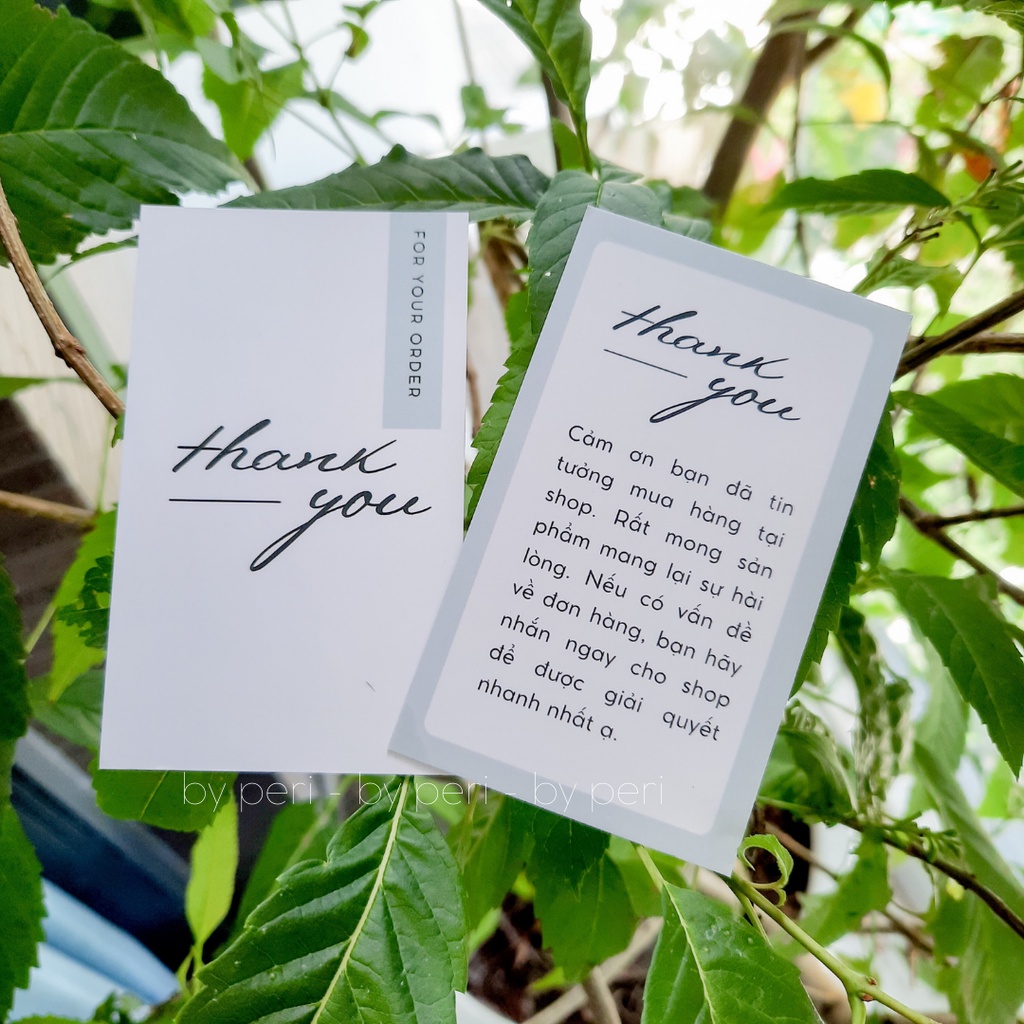 FOR YOUR ORDER
thank
you
thank
you
Cảm ơn bạn đã tin
tưởng mua hàng tại
shop. Rất mong sản
phẩm mang lại sự hài
lòng. Nếu có vấn đề
về đơn hàng, bạn hãy
nhắn ngay cho shop
để được giải quyết
nhanh nhất ạ.
by peri - by peri - by peri